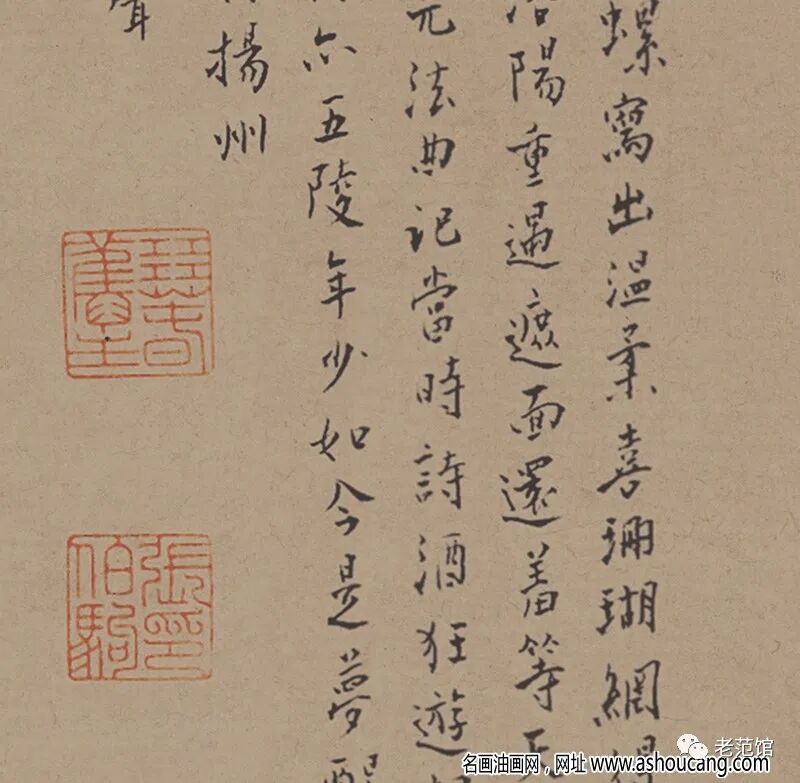 螺寫出温柔喜珊瑚網
洛陽重遇遮面還羞等
元法曲記當時詩酒狂遊
亦五陵年少如今是夢醒
揚州
張印
伯駒
老范馆
名画油画网，网址 www.ashoucang.com